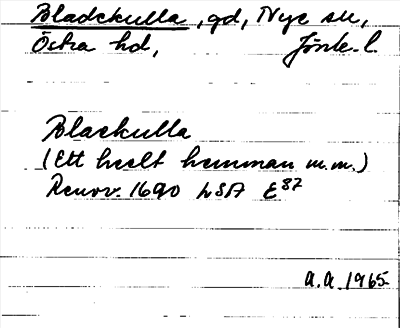 Bladekulla, gd, Nye sn,
Östra hd, Jönk. l.
Blaekulla
(Ett heelt hemman m.m.)
Renov. 1690 LSA E87
A.A. 1965